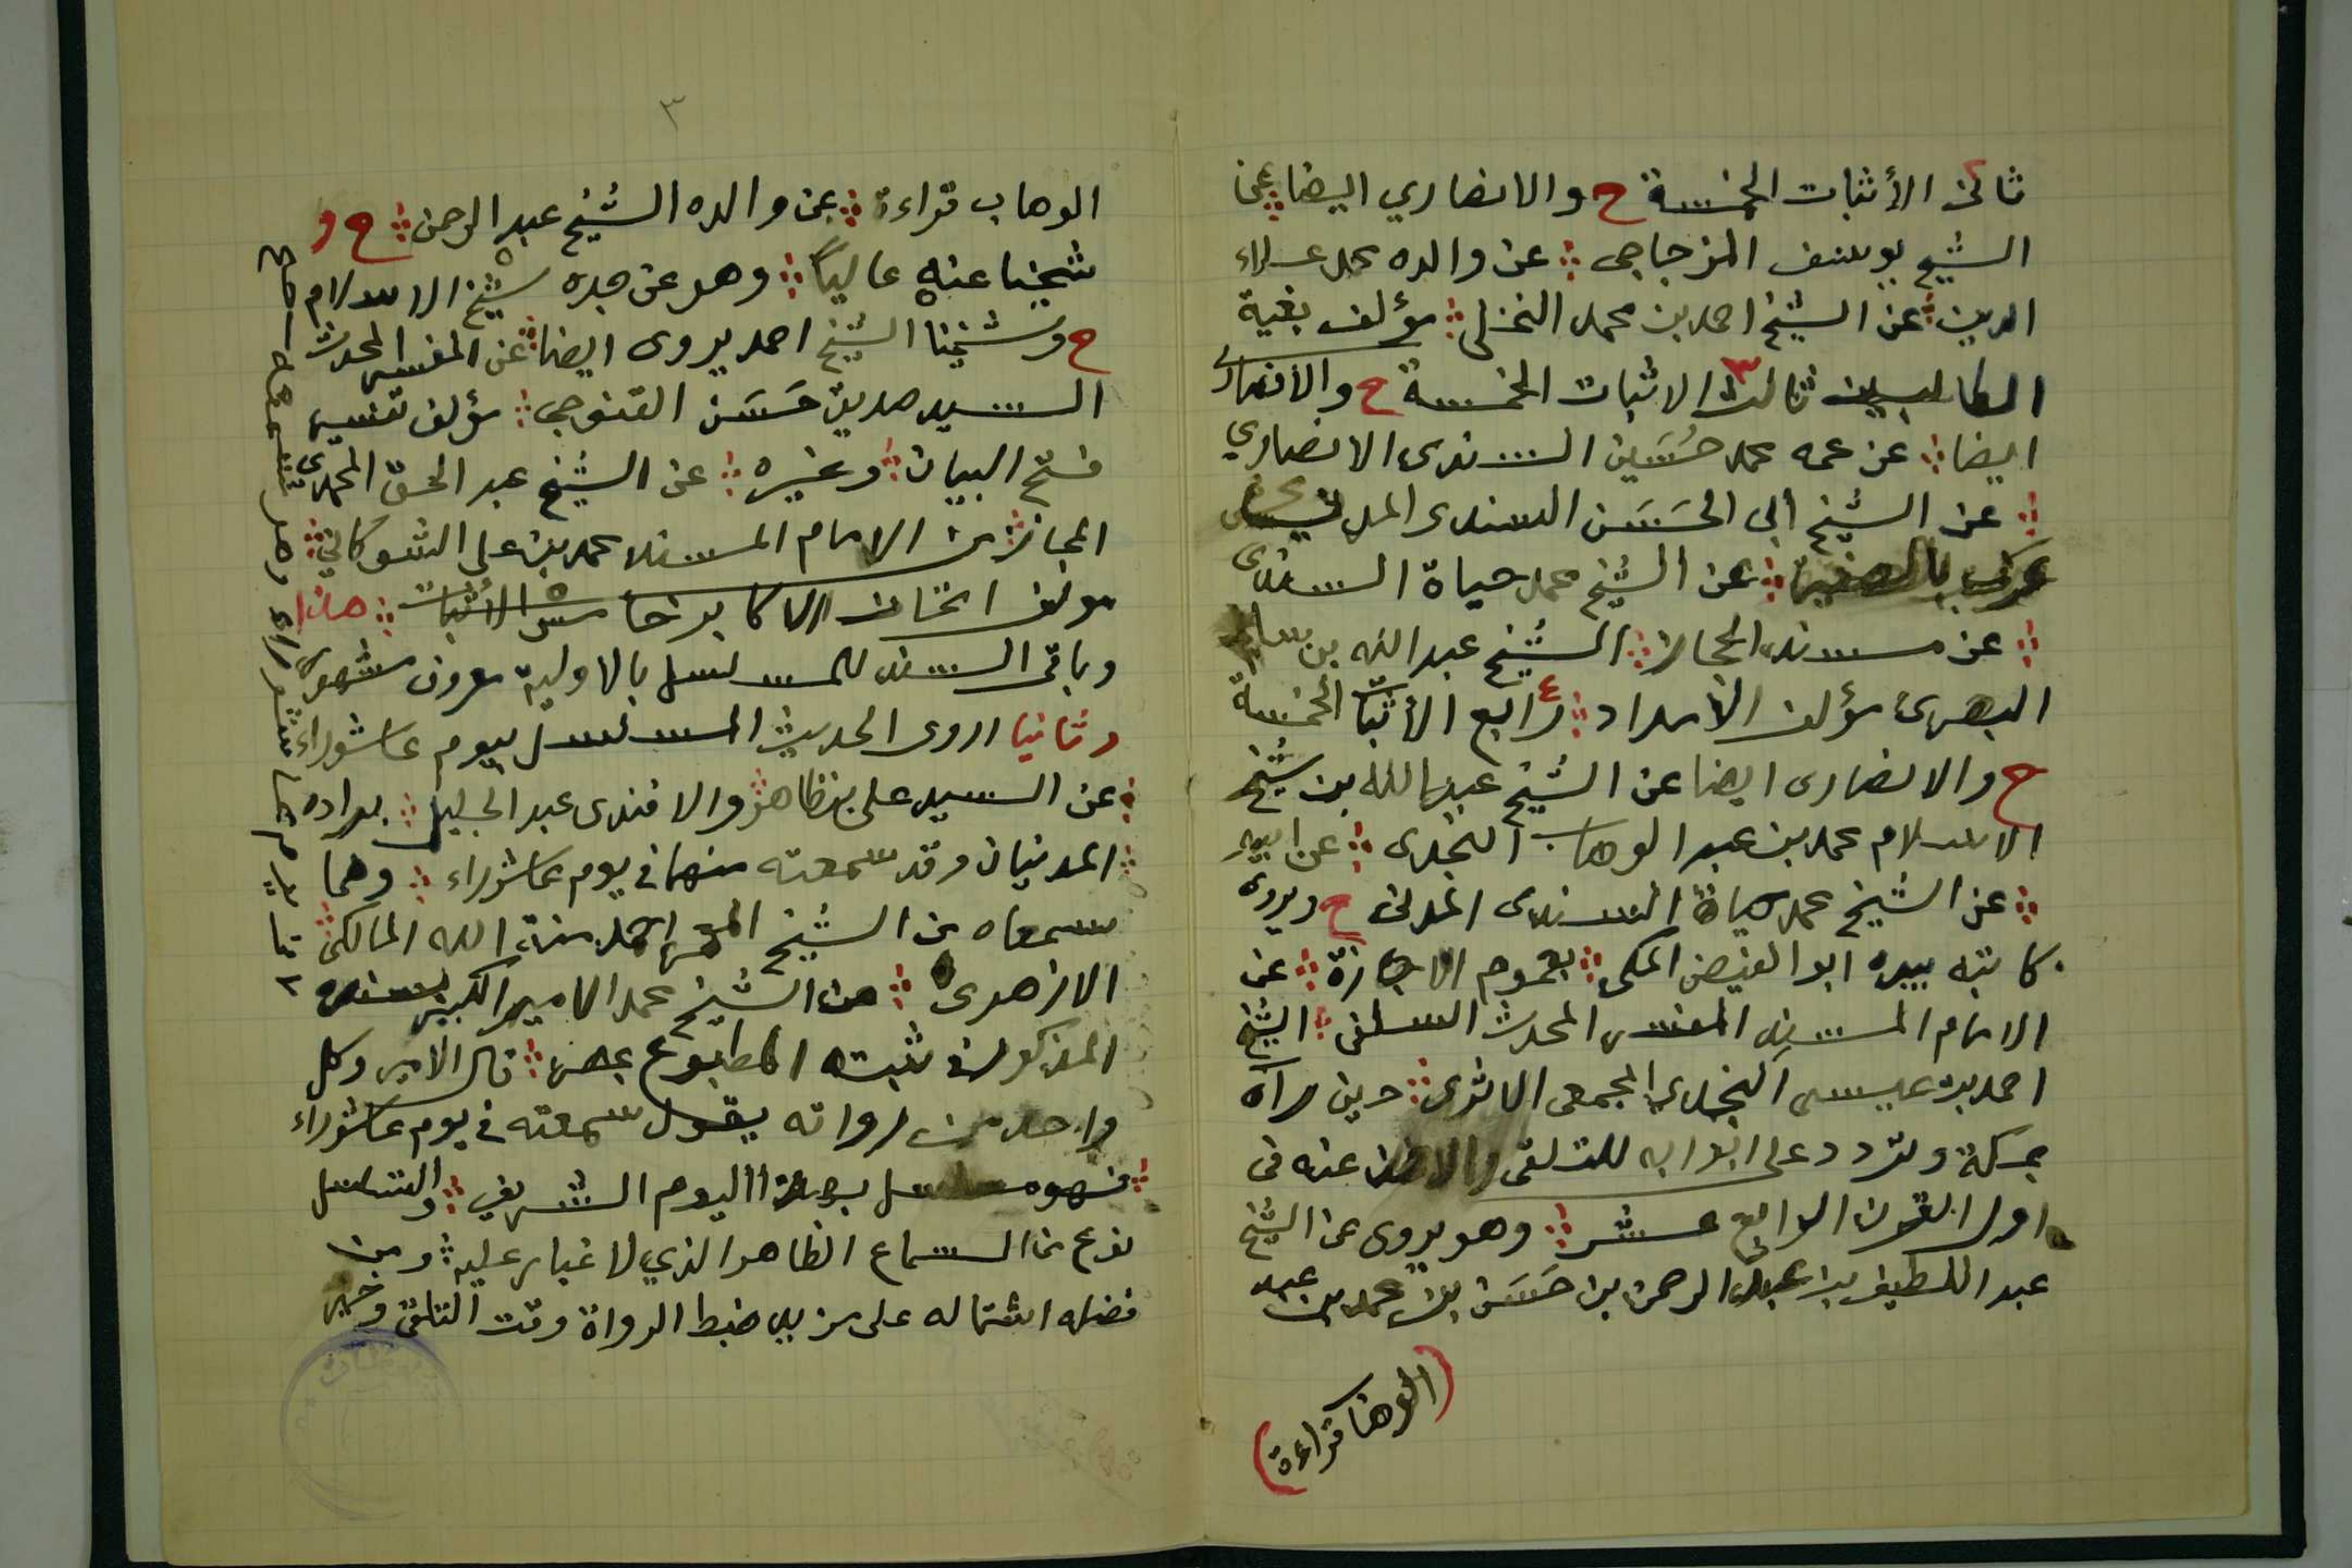 ثانى الأثبات الخمسة ح والانصاري ايضا عن
الشيخ يوسف المزجاجى عن والده محمد علاء
الدين عن الشيخ احمد بن محمد النخلى مؤلف بغية
الطالبين ثالث ٣ الاثبات الخمسة ح والأنصارى
ايضا عن عمه محمد حُسَين السندى الانصاري
عن الشيخ أبى الحَسَن السندى المدنى
عن الشيخ محمد حياة السندى
عن مسند الحجاز الشيخ عبد الله بن سالم
البصرى مؤلف الأمداد رابع ٤ الأثبات الخمسة
ح والانصارى ايضا عن الشيخ عبد الله بن شيخ
الاسلام محمد بن عبد الوهاب النجدى عن ابيه
عن الشيخ محمد حياة السندى المدنى ح ويروى
كاتبه بيده ابو الفيض المكى بعموم الاجازة عن
الامام المسند المفسر المحدث السلفى الشيخ
احمد بن عيسى النجدى المجمعى الاثرى حين رآه
بمكة وتردد على ابوابه للتلقى والاخذ عنه فى
اول القرن الرابع عشر وهو يروى عن الشيخ
عبد اللطيف بن عبد الرحمن بن حَسَن بن محمد بن عبد
(الوهاب قراءة)
٣
الوهاب قراءة عن والده الشيخ عبد الرحمن ح و
شيخنا عنه عالياً وهو عن جده شيخ الاسلام
ح وشيخنا الشيخ احمد يروى ايضا عن المفسر المحدث
السيد صديق حَسَن القنوجى مؤلف تفسير
فتح البيان وغيره عن الشيخ عبد الحق المحمدى
المجاز من الامام المسند محمد بن على الشوكاني
مولف اتحاف الاكابر خامس ٥ الاثبات هذا
وباقى السند للمسلسل بالاولية معروف مشهور
وثانيا اروى الحديث المسلسل بيوم عاشوراء
عن السيد على بن ظاهر والافندى عبد الجليل براده
المدنيان وقد سمعته منهما فى يوم عاشوراء وهما
سمعاه من الشيخ المعمر احمد منة الله المالكى
الازهرى عن الشيخ محمد الامير الكبير بسنده
المذكور فى ثبته المطبوع بمصر قال الامير وكل
واحد من رواته يقول سمعته فى يوم عاشوراء
فهو مسلسل بهذا اليوم الشريف والتسلسل
نوع من السماع الظاهر الذي لا غبار عليه ومن
فضله اشتماله على مزيد ضبط الرواة وقت التلقى